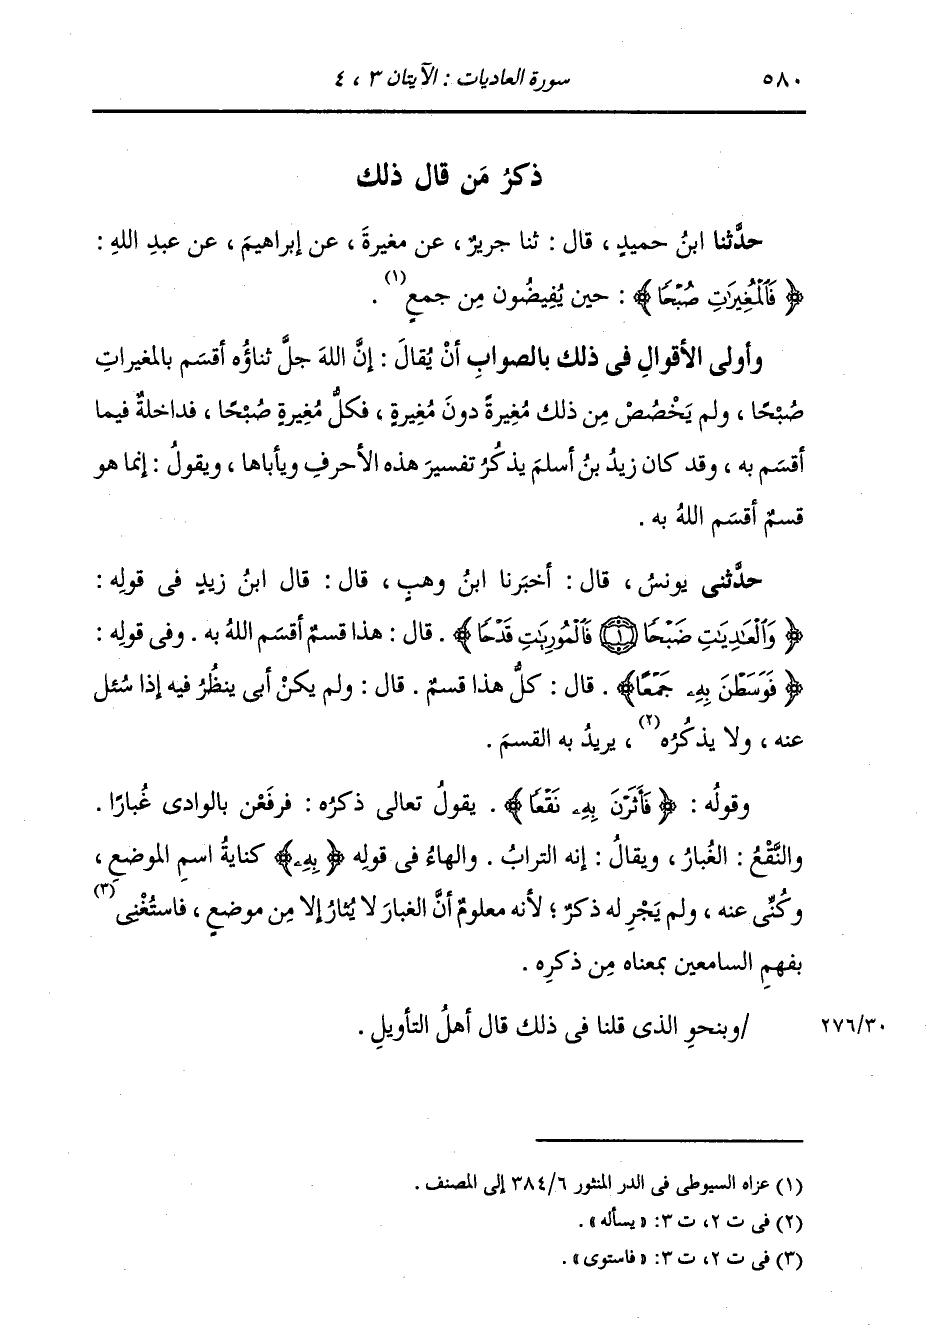 ٥٨٠ سورة العاديات : الآيتان ٣ ، ٤
ذكرُ مَن قال ذلك
حدَّثنا ابنُ حميدٍ ، قال : ثنا جريرٌ ، عن مغيرةَ ، عن إبراهيمَ ، عن عبدِ اللهِ :
﴿ فَٱلْمُغِيرَٰتِ صُبْحًا ﴾ : حين يُفِيضُون مِن جمعٍ(١) .
وأولى الأقوالِ فى ذلك بالصوابِ أنْ يُقالَ : إنَّ اللهَ جلَّ ثناؤُه أقسَم بالمغيراتِ
صُبْحًا ، ولم يَخْصُصْ مِن ذلك مُغِيرةً دونَ مُغِيرةٍ ، فكلُّ مُغِيرةٍ صُبْحًا ، فداخلةٌ فيما
أقسَم به ، وقد كان زيدُ بنُ أسلمَ يذكُرُ تفسيرَ هذه الأحرفِ ويأباها ، ويقولُ : إنما هو
قسمٌ أقسَم اللهُ به .
حدَّثنى يونسُ ، قال : أخبَرنا ابنُ وهبٍ ، قال : قال ابنُ زيدٍ فى قولِه :
﴿ وَٱلْعَٰدِيَٰتِ ضَبْحًا ۝١ فَٱلْمُورِيَٰتِ قَدْحًا ﴾ . قال : هذا قسمٌ أقسَم اللهُ به . وفى قولِه :
﴿ فَوَسَطْنَ بِهِۦ جَمْعًا ﴾ . قال : كلُّ هذا قسمٌ . قال : ولم يكنْ أبى ينظُرُ فيه إذا سُئل
عنه ، ولا يذكُرُه(٢) ، يريدُ به القسمَ .
وقولُه : ﴿ فَأَثَرْنَ بِهِۦ نَقْعًا ﴾ . يقولُ تعالى ذكرُه : فرفَعْن بالوادى غُبارًا .
والنَّقْعُ : الغُبارُ ، ويقالُ : إنه الترابُ . والهاءُ فى قولِه ﴿ بِهِۦ ﴾ كنايةُ اسمِ الموضعِ ،
وكُنِّى عنه ، ولم يَجْرِ له ذكرٌ ؛ لأنه معلومٌ أنَّ الغبارَ لا يُثارُ إلا مِن موضعٍ ، فاستُغْنِى(٣)
بفهمِ السامعين بمعناه مِن ذكرِه .
٢٧٦/٣٠ /وبنحوِ الذى قلنا فى ذلك قال أهلُ التأويلِ .
(١) عزاه السيوطى فى الدر المنثور ٣٨٤/٦ إلى المصنف .
(٢) فى ت ٢، ت ٣: «يسأله» .
(٣) فى ت ٢، ت ٣: «فاستوى» .